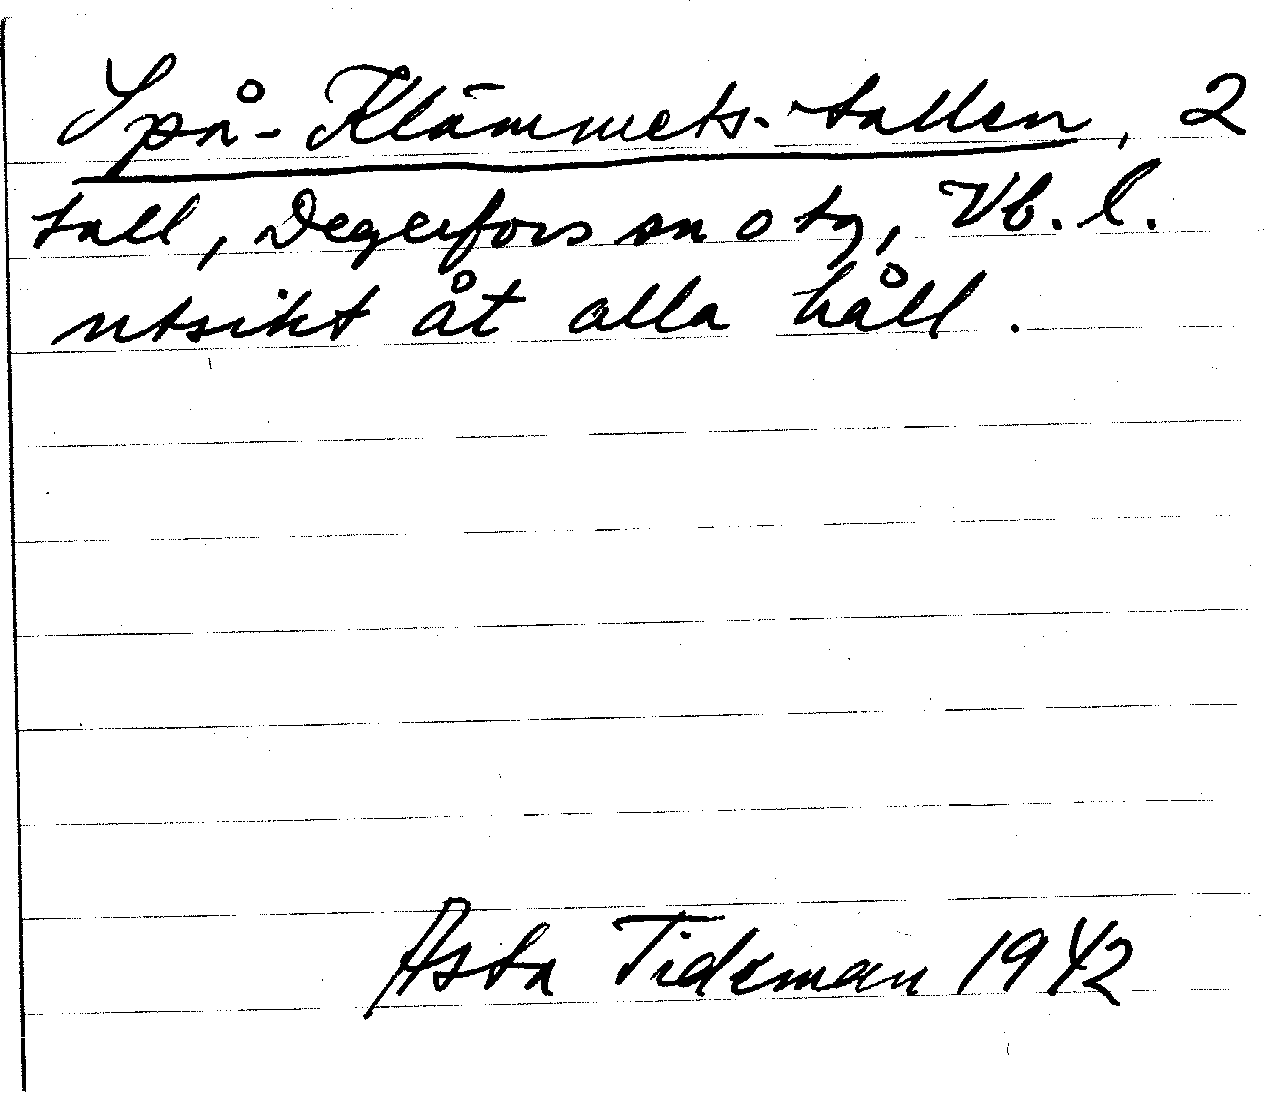 Spå-Klämmets-tallen, 2
tall, Degerfors sn o tg, Vb. l.
utsikt åt alla håll.
Asta Tideman 1942